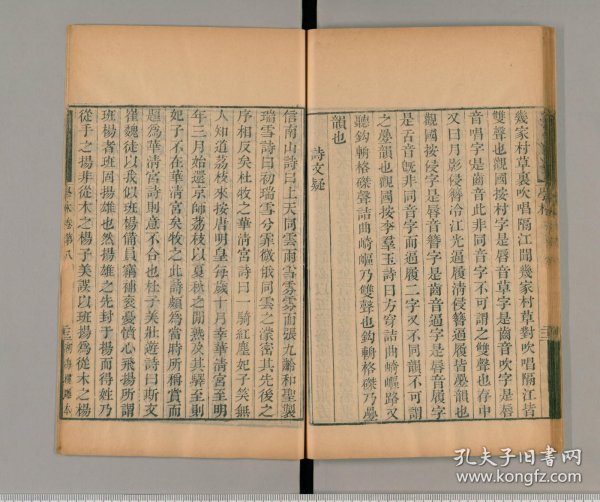 幾家村草裏吹唱隔江聞幾家村草對吹唱隔江皆
雙聲也觀國按村字是齒音草字是齒音吹字是唇
音唱字是齒音此非同音字不可謂之雙聲也存中
又曰月影侵簪冷江光逼履清侵簪逼履皆疊韻也
觀國按侵字是唇音簪字是齒音逼字是唇音履字
是舌音旣非同音字而逼履二字又不同韻不可謂
之疊韻也觀國按李羣玉詩曰方穿詰曲崎嶇路又
聽鈎輈格磔聲詰曲崎嶇乃雙聲也鈎輈格磔乃疊
韻也
詩文疑
信南山詩曰上天同雲雨雪雰雰而張九齡和聖製
瑞雪詩曰初瑞雪兮霏微俄同雲之濛密其先後之
序相反矣杜牧之華清宮詩曰一騎紅塵妃子笑無
人知道荔枝來按唐明皇每歲十月幸華清宮至明
年三月始還京師荔枝以夏秋之間熟及其驛至則
妃子不在華清宮矣牧之此詩頗爲當時所稱賞而
題爲華清宮詩則意不合也杜子美壯遊詩曰斯文
崔魏徒以我似班楊備員竊補衮憂憤心飛揚所謂
班楊者班固揚雄也然揚雄之先封于揚而得姓乃
從手之揚非從木之楊子美誤以班揚爲從木之楊
學林
學林卷第八
孔夫子旧书网
www.kongfz.com